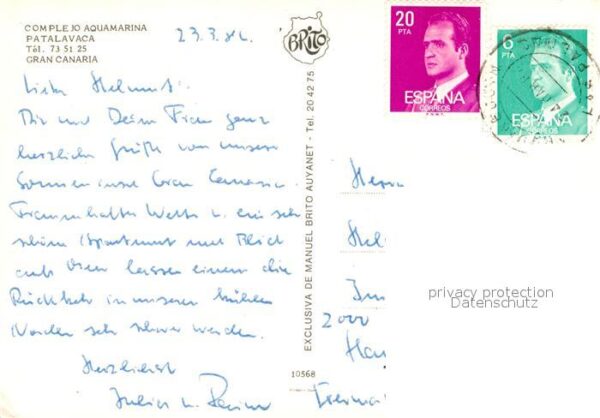 COMPLEJO AQUAMARINA
PATALAVACA
Tél. 73 51 25
GRAN CANARIA
23.3.82.
Lieber Helmut!
Dir und Deiner Frau ganz
herzliche Grüße von unserer
Sonneninsel Gran Canaria.
Traumhaftes Wetter u. ein sehr
schönes Apartment mit Blick
aufs Meer lassen einem die
Rückkehr in unseren kühlen
Norden sehr schwer werden.
Herzlichst
u.
BRITO
EXCLUSIVA DE MANUEL BRITO AUYANET - Tel. 20 42 75
10568
20
PTA
ESPAÑA
CORREOS
6
PTA
ESPAÑA
CORREOS
Herrn
Hel
Im
2000
Ham
privacy protection
Datenschutz